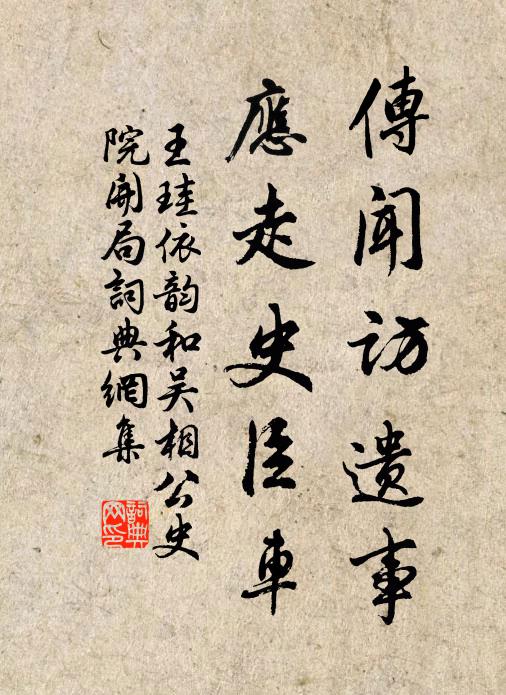 傳聞訪遺事
應走史臣車
王珪依韵和吴相公史
院開局詞典網集
詞典
网印